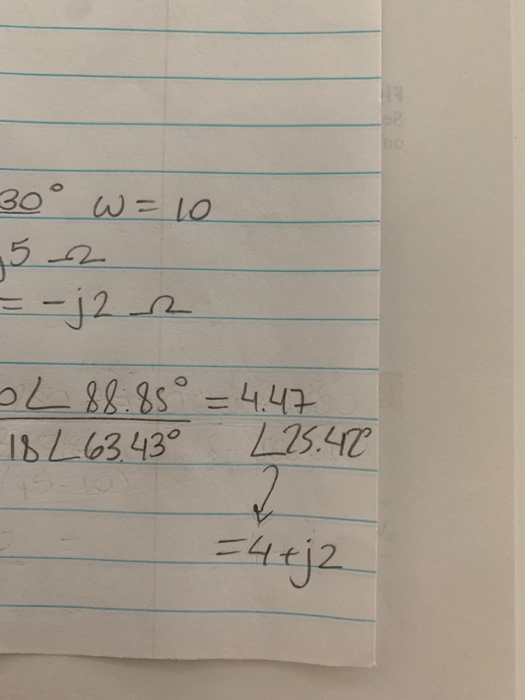 30° ω = 10
j5 Ω
= -j2 Ω
0∠ 88.85° = 4.47
18∠63.43° ∠25.42°
= 4 + j2